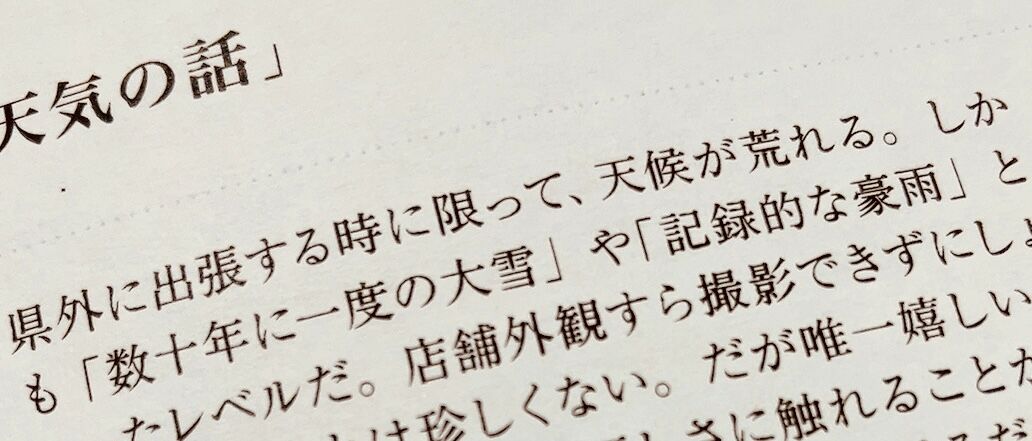 天気の話」
県外に出張する時に限って、天候が荒れる。しか
も「数十年に一度の大雪」や「記録的な豪雨」と
たレベルだ。店舗外観すら撮影できずにしょ
は珍しくない。だが唯一嬉しい
さに触れることが